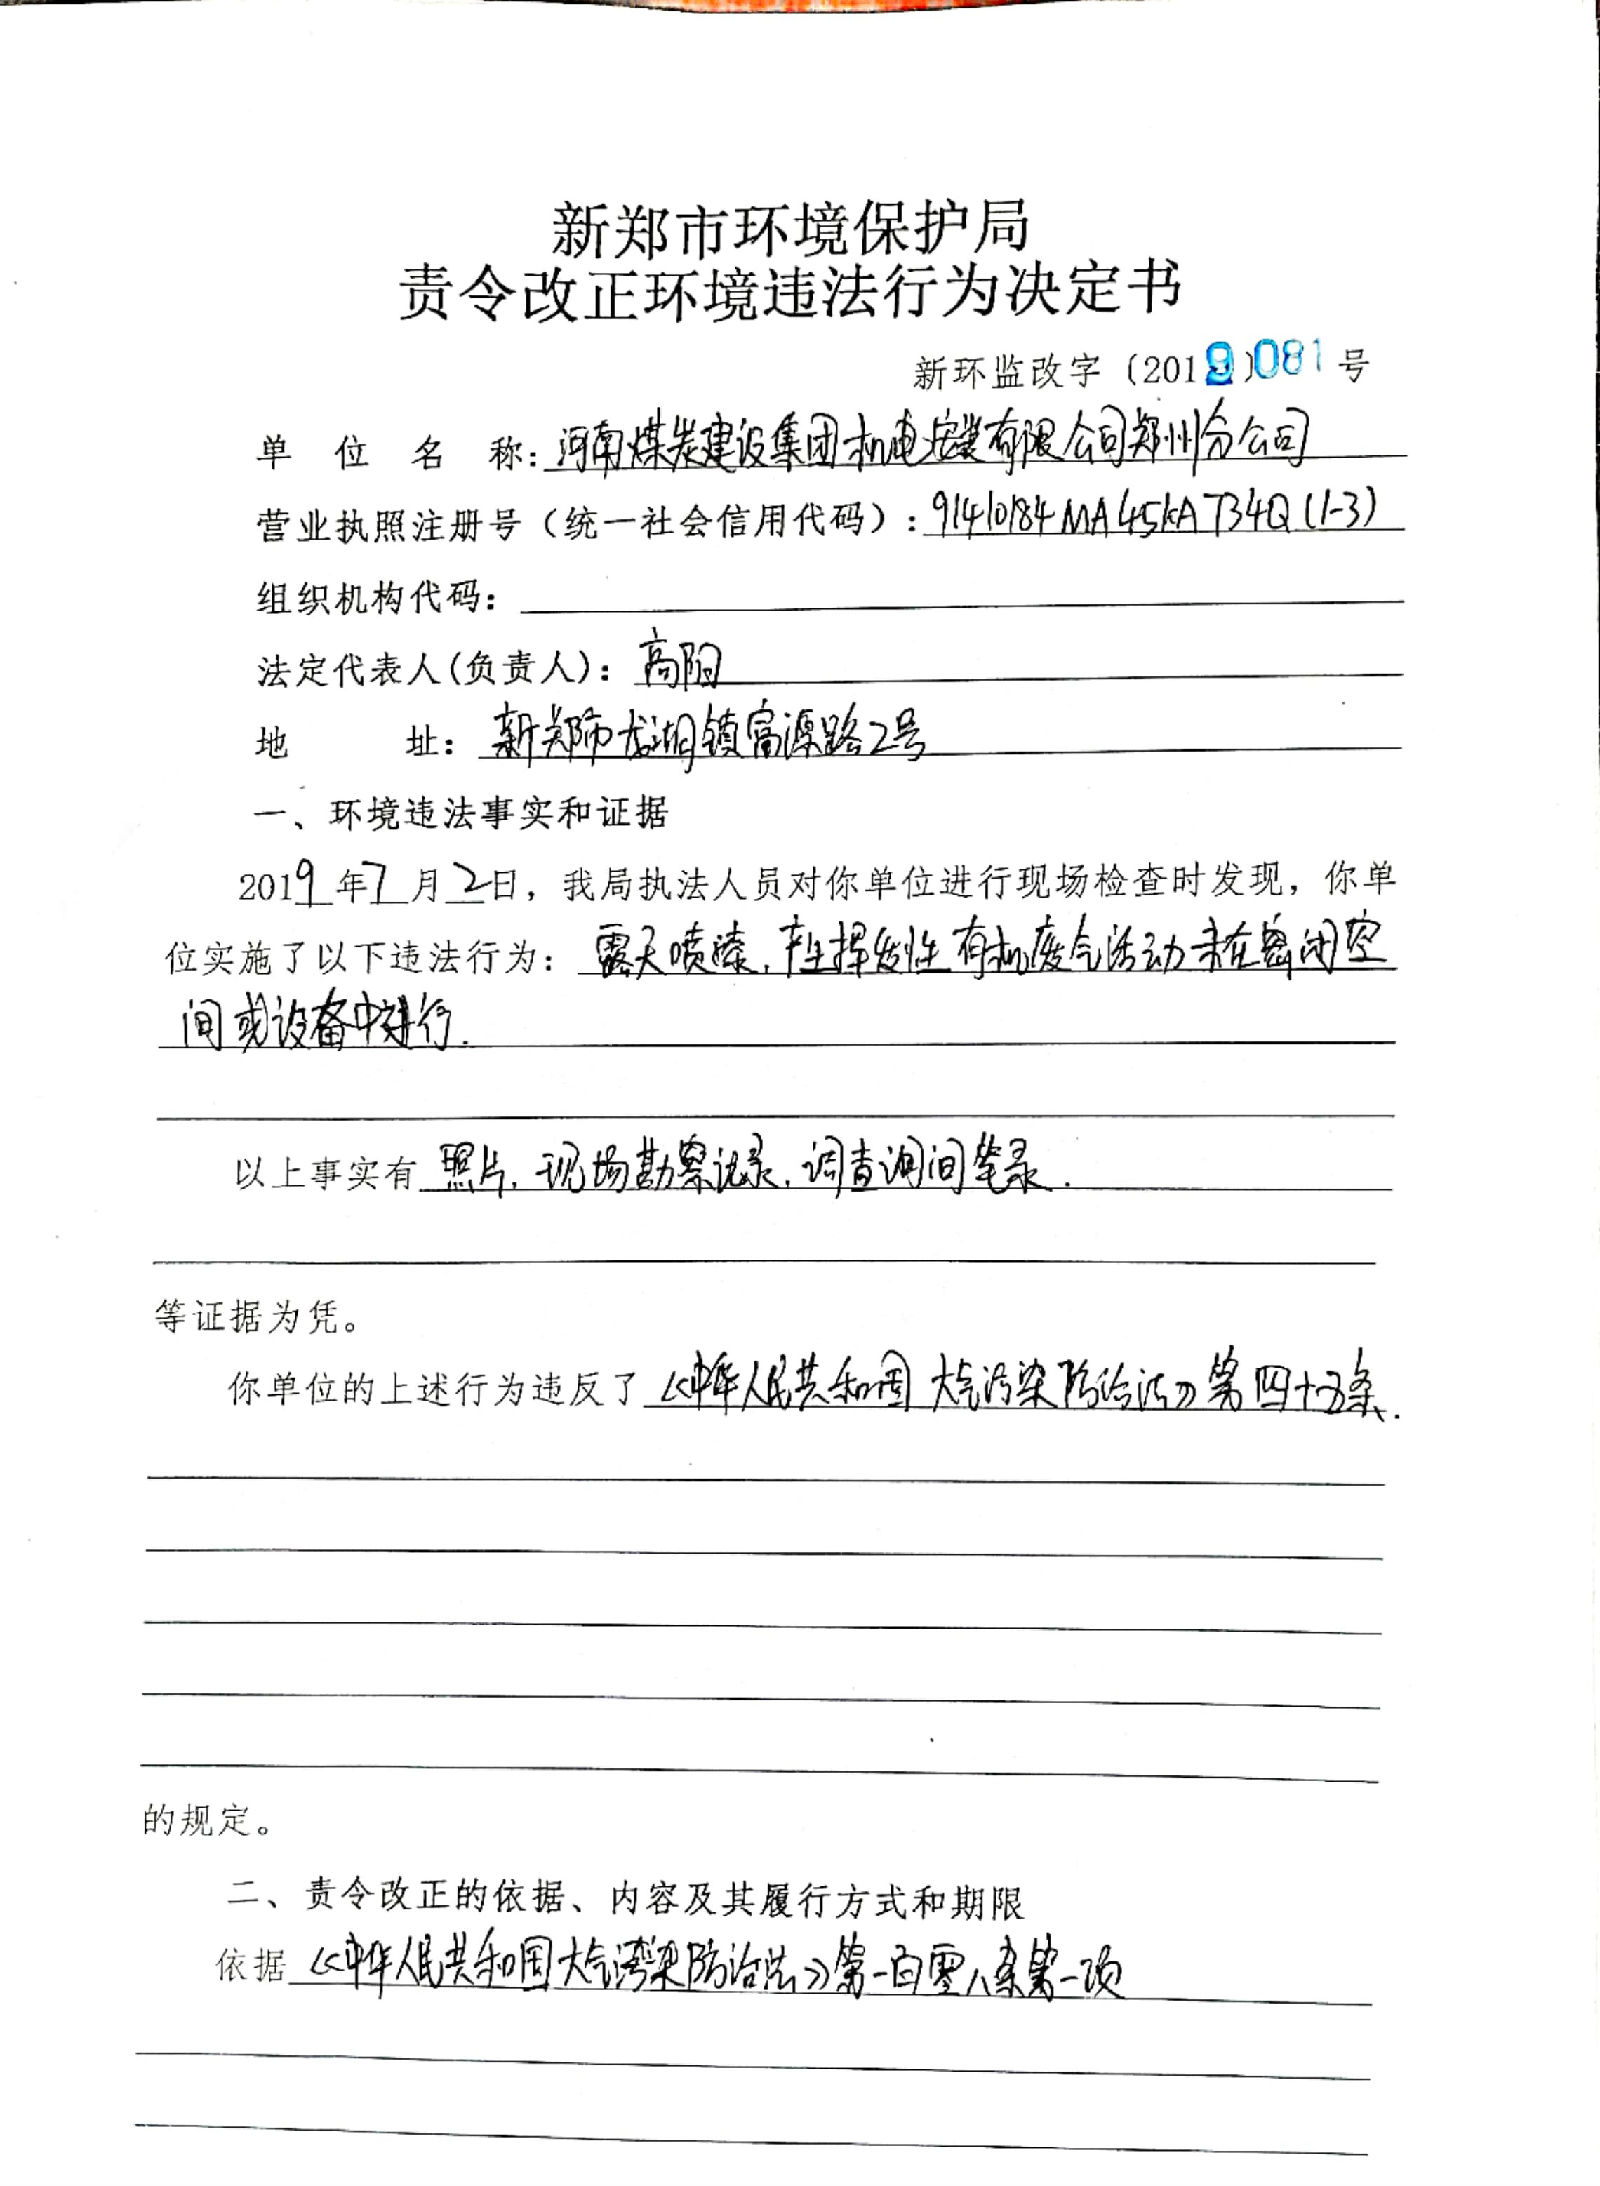 新郑市环境保护局
责令改正环境违法行为决定书
新环监改字（2019）081号
单位名称：河南煤炭建设集团机电安装有限公司郑州分公司
营业执照注册号（统一社会信用代码）：91410184MA45KAT34Q（1-3）
组织机构代码：
法定代表人(负责人)：高阳
地址：新郑市龙湖镇富源路2号
一、环境违法事实和证据
2019年7月2日，我局执法人员对你单位进行现场检查时发现，你单
位实施了以下违法行为：露天喷漆，产生挥发性有机废气活动未在密闭空
间或设备中进行.
以上事实有照片，现场勘察记录，调查询问笔录.
等证据为凭。
你单位的上述行为违反了《中华人民共和国大气污染防治法》第四十五条.
的规定。
二、责令改正的依据、内容及其履行方式和期限
依据《中华人民共和国大气污染防治法》第一百零八条第一项